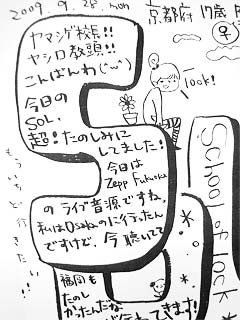 2009. 9. 28. mon
京都府 17歳
ヤマシゲ校長!!
ヤシロ教頭!!
こんばんわ(˘ω˘)
look!
今日の
SOL.
超!たのしみに
してました!
今日は
Zepp Fukuoka
の ライブ音源ですね。
私はOsakaのに行ったん
ですけど、今聴いてて
福岡も
たのし
かったんだな
行ってきます!
もういちど行きたい!
School of lock